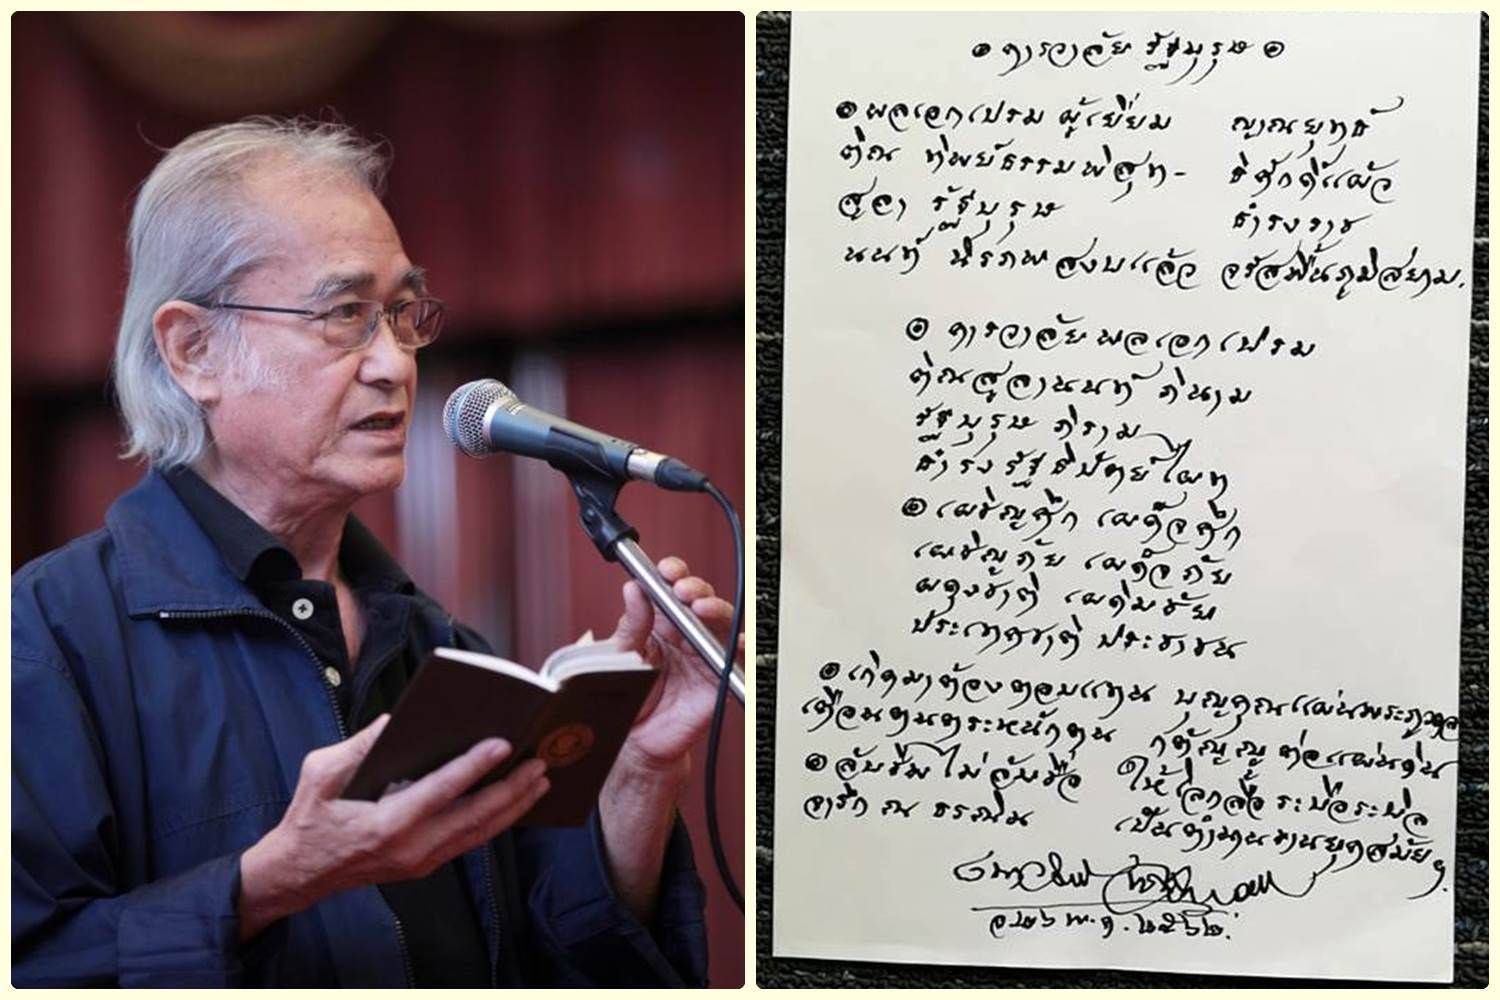 ๏ คารวาลัย รัฐบุรุษ ๏
๏ พลเอกเปรม ผู้เยี่ยม ญาณยุทธ์
ติณ ทิพย์ธรรมพิสุท- ธิศักดิ์แผ้ว
สูลา รัฐบุรุษ ธำรงราช
นนท์ นิรภพสงบแล้ว จรัสพื้นภูมิสยาม.
๏ คารวาลัยพลเอกเปรม
ติณสูลานนท์ ภินาม
รัฐบุรุษ ภิราม
ธำรงรัฐธิปัตย์ไผท
๏ เผชิญศึก เผด็จศึก
เผชิญภัย เผด็จภัย
ผดุงชาติ เผดิมชัย
ประเทศชาติ ประชาชน
๏ เกิดมาต้องตอบแทน บุญคุณแผ่นพระภูวดล
เตือนตนตระหนักตน กตัญญูต่อแผ่นดิน
๏ ลับชีพไม่ลับชื่อ ให้โลกลือระบือระบิล
จารึก ณ ธรณิน เป็นตำนานงานยุคสมัย ฯ
จ.๒๖ พ.ค. ๒๕๖๒.